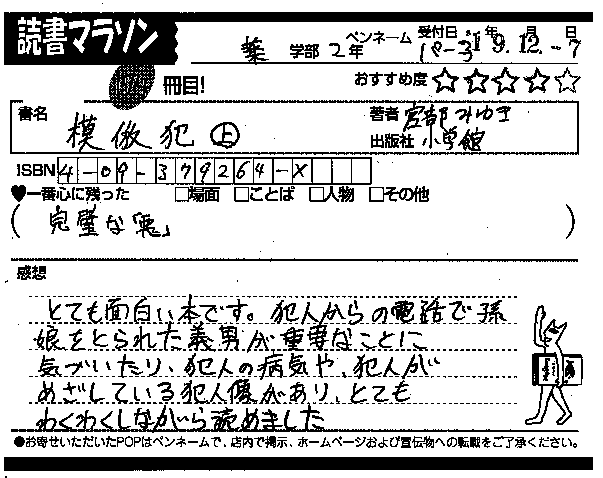 読書マラソン
薬 学部 2年
ペンネーム
受付日 '19年 12月 7日
冊目!
おすすめ度 ☆☆☆☆☆
書名 模倣犯 上
著者 宮部みゆき
出版社 小学館
ISBN 4-09-379264-X
♥一番心に残った □場面 □ことば □人物 □その他
(完璧な「悪」)
感想
とても面白い本です。犯人からの電話で孫
娘をとられた義男が重要なことに
気づいたり、犯人の病気や、犯人が
めざしている犯人像があり、とても
わくわくしながら読めました
●お寄せいただいたPOPはペンネームで、店内で掲示、ホームページおよび宣伝物への転載をご了承ください。